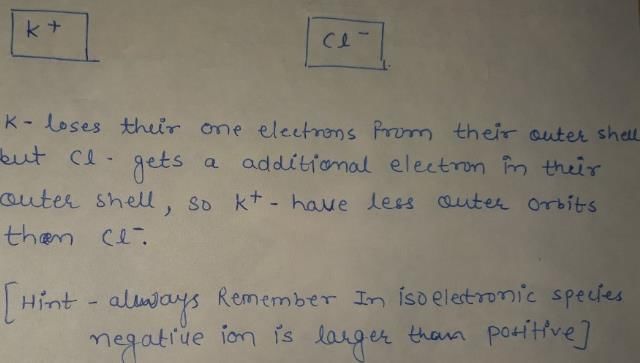 K+
Cl-
K- loses their one electrons from their outer shell
but Cl - gets a additional electron in their
outer shell, so K+ - have less outer orbits
than Cl-.
[Hint - always Remember In isoelectronic species
negative ion is larger than positive]